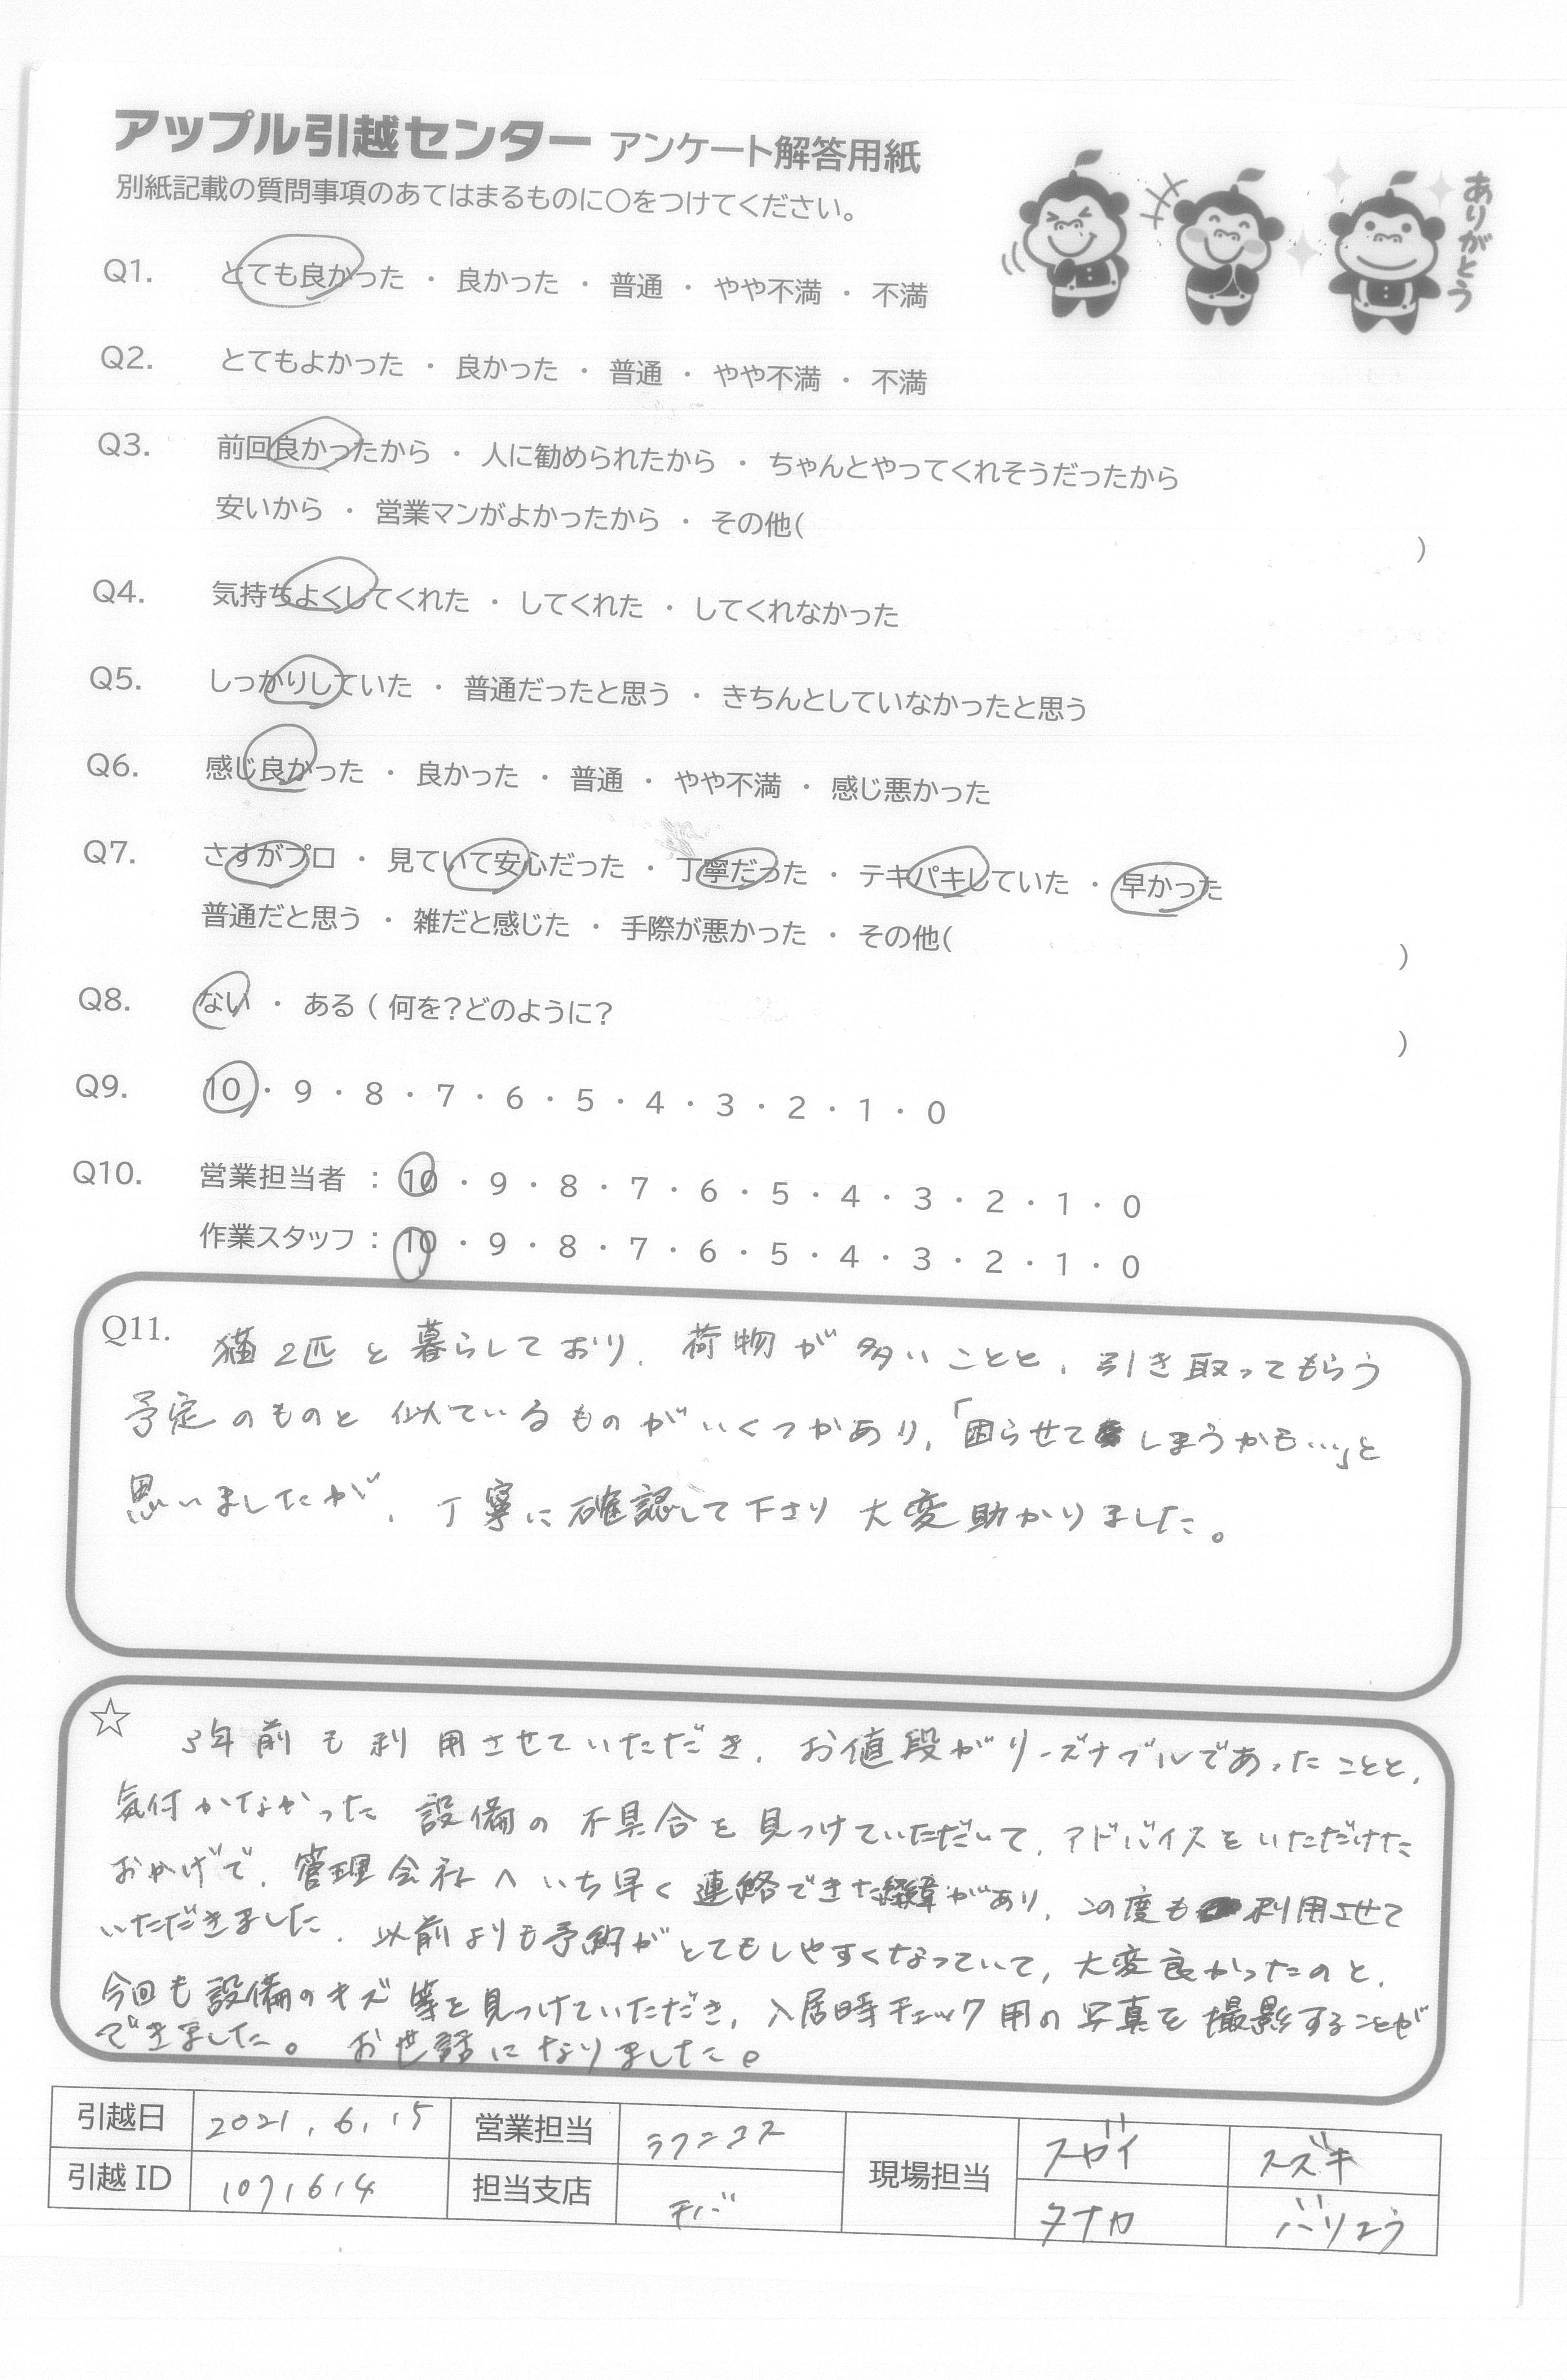 アップル引越センター アンケート解答用紙
別紙記載の質問事項のあてはまるものに○をつけてください。
ありがとう
Q1. とても良かった ・ 良かった ・ 普通 ・ やや不満 ・ 不満
Q2. とてもよかった ・ 良かった ・ 普通 ・ やや不満 ・ 不満
Q3. 前回良かったから ・ 人に勧められたから ・ ちゃんとやってくれそうだったから
安いから ・ 営業マンがよかったから ・ その他( )
Q4. 気持ちよくしてくれた ・ してくれた ・ してくれなかった
Q5. しっかりしていた ・ 普通だったと思う ・ きちんとしていなかったと思う
Q6. 感じ良かった ・ 良かった ・ 普通 ・ やや不満 ・ 感じ悪かった
Q7. さすがプロ ・ 見ていて安心だった ・ 丁寧だった ・ テキパキしていた ・ 早かった
普通だと思う ・ 雑だと感じた ・ 手際が悪かった ・ その他( )
Q8. ない ・ ある ( 何を?どのように? )
Q9. 10 ・ 9 ・ 8 ・ 7 ・ 6 ・ 5 ・ 4 ・ 3 ・ 2 ・ 1 ・ 0
Q10. 営業担当者 : 10 ・ 9 ・ 8 ・ 7 ・ 6 ・ 5 ・ 4 ・ 3 ・ 2 ・ 1 ・ 0
作業スタッフ : 10 ・ 9 ・ 8 ・ 7 ・ 6 ・ 5 ・ 4 ・ 3 ・ 2 ・ 1 ・ 0
Q11. 猫2匹と暮らしており、荷物が多いことと、引き取ってもらう
予定のものと似ているものがいくつかあり、「困らせてしまうかも…」と
思いましたが、丁寧に確認して下さり大変助かりました。
☆ 3年前も利用させていただき、お値段がリーズナブルであったことと、
気付かなかった設備の不具合を見つけていただいて、アドバイスをいただけた
おかげで、管理会社へいち早く連絡できた経緯があり、この度も利用させて
いただきました。以前よりも予約がとてもしやすくなっていて、大変良かったのと、
今回も設備のキズ等を見つけていただき、入居時チェック用の写真を撮影することが
できました。お世話になりました。
引越日 2021.6.15 営業担当 現場担当 スガイ スズキ
引越ID 1071614 担当支店 チバ タナカ